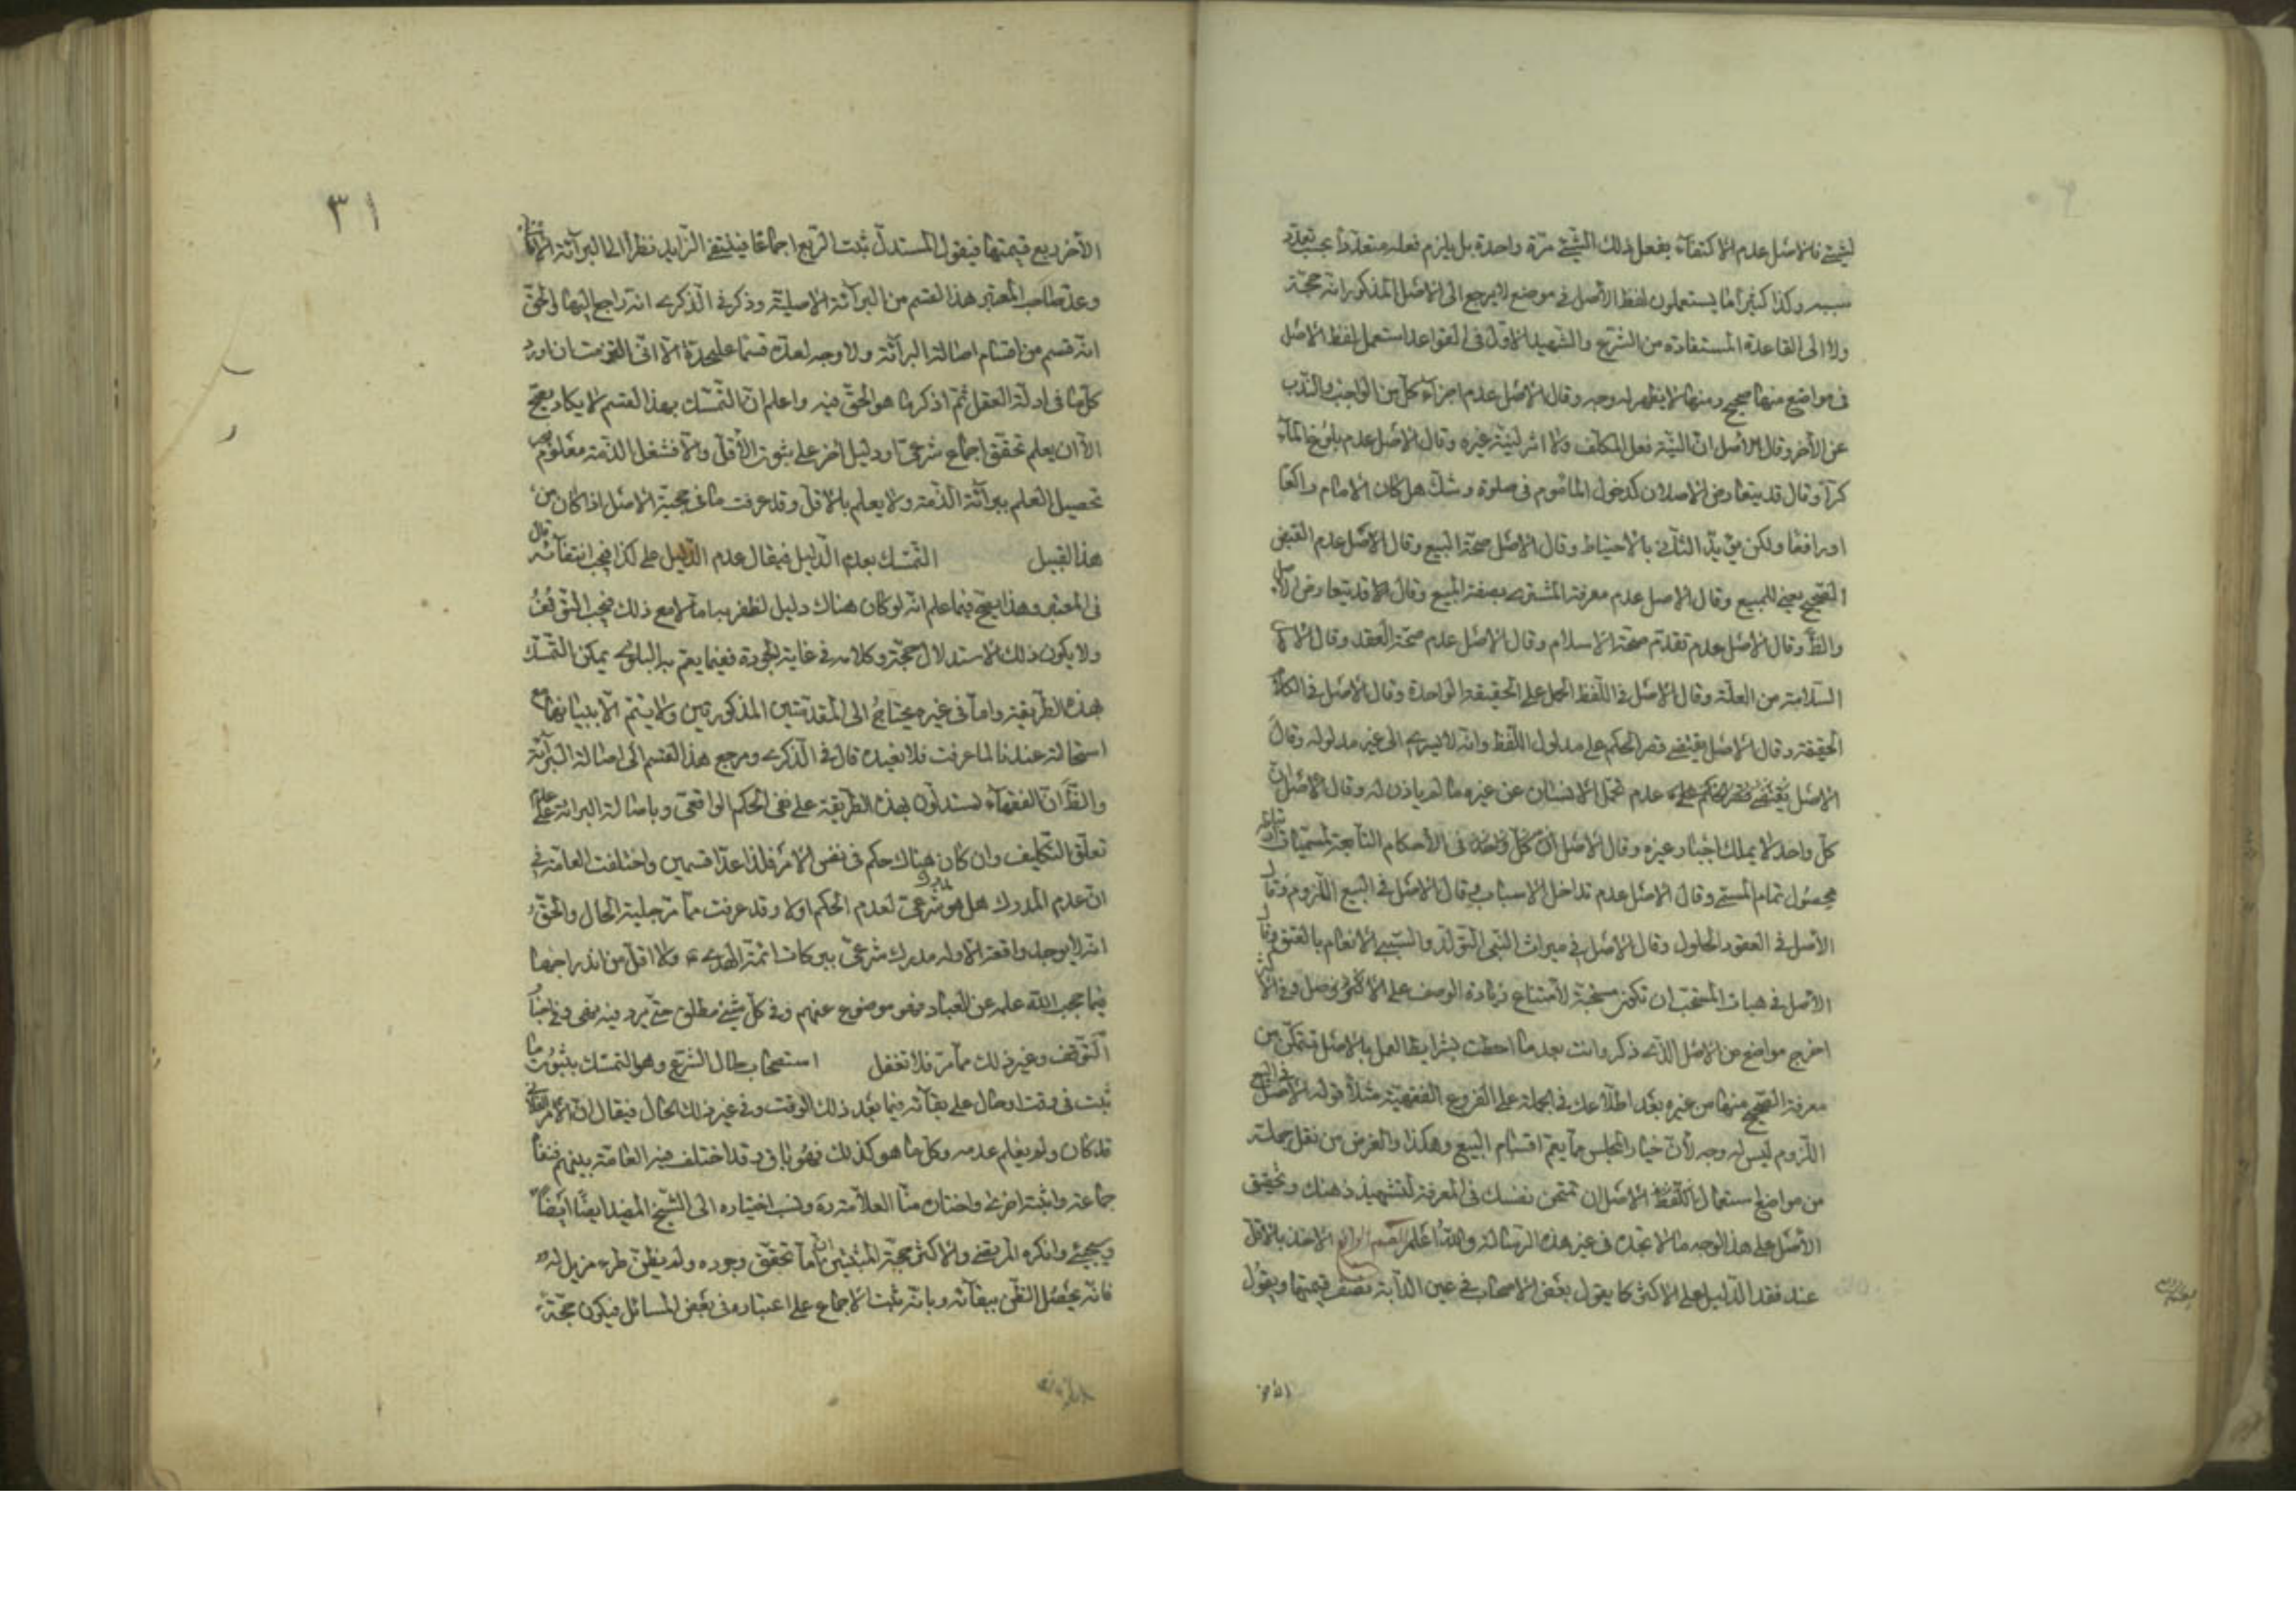 لشيئ فالاصل عدم الاكتفاء بفعل ذلك الشيئ مرة واحدة بل يلزم فعله متعددا بحسب تعدد
سببه وكذا كثيرا ما يستعملون لفظ الاصل في موضع لا يرجع الى الاصل المذكور انه حجة
ولا الى القاعدة المستفادة من الشرع والشهيد الاول في القواعد استعمل لفظ الاصل
في مواضع منها صحيح ومنها لا يظهر له وجه وقال الاصل عدم اجزاء كل من الواجب والندب
عن الاخر وقال الاصل ان النية فعل المكلف ولا اثر لنية غيره وقال الاصل عدم بلوغ الماء
كرا وقال قد يتعارض الاصلان كدخول الماموم في صلوة وشك هل كان الامام راكعا
او رافعا ولكن يؤيد الثاني بالاحتياط وقال الاصل صحة البيع وقال الاصل عدم القبض
الصحيح يعني للمبيع وقال الاصل عدم معرفة المشتري بصفة المبيع وقال قد يتعارض الاصل
والظ وقال الاصل عدم تقدم صحة الاسلام وقال الاصل عدم صحة العقد وقال الاصل
السلامة من العلة وقال الاصل في اللفظ الحمل على الحقيقة الواحدة وقال الاصل في الكلام
الحقيقة وقال الاصل يقتضي قصر الحكم على مدلول اللفظ وانه لا يسري الى غير مدلوله وقال
الاصل يقتضي قصر الحكم عليه عدم تحمل الانسان عن غيره ما لم ياذن له وقال الاصل ان
كل واحد لا يملك اجبار غيره وقال الاصل ان كل واحد في الأحكام التابعة لمسميات
بحصول تمام المسمى وقال الاصل عدم تداخل الاسباب وقال الاصل في البيع اللزوم وقال
الأصل في العقود الحلول وقال الاصل في ميراث النسبي التولد والسببي الانعام بالعتق وقال
الأصل في هيات المستحب ان تكون مستحبة لامتناع زيادة الوصف على الاصل
اخرج مواضع من الاصل الذي ذكر وانت بعد ما احطت بشرايط العمل بالاصل تتمكن من
معرفة الصحيح منها من غيره بعد اطلاعك في الجملة على الفروع الفقهية مثلا قوله الاصل في البيع
اللزوم ليس له وجه لأن خيار المجلس مما يعم اقسام البيع وهكذا والغرض من نقل جملة
من مواضع استعمال لفظ الاصل ان تمتحن نفسك في المعرفة لتشحيذ ذهنك وتحقيق
الأصل على هذا الوجه مما لا تجده في غير هذه الرسالة والله اعلم القسم الرابع الاخذ بالاقل
عند فقد الدليل على الاكثر كما يقول بعض الاصحاب في عين الدابة نصف قيمتها ويقول
الأخر
الأخر ربع قيمتها فيقول المستدل ثبت الربع اجماعا فينتفي الزايد نظرا الى البرائة الاصلية
وعد صاحب المعتبر هذا القسم من البرائة الاصلية وذكر في الذكرى انه راجع اليها والحق
انه قسم من اقسام اصالة البرائة ولا وجه لعده قسما عليحدة الا انى التزمت ان اورد
كل ما في ادلة العقل ثم اذكر ما هو الحق فيه واعلم ان التمسك بهذا القسم لا يكاد يصح
الا ان يعلم تحقق اجماع شرعي او دليل اخر على ثبوت الأقل والا فشغل الذمة معلوم
تحصيل العلم ببرائة الذمة ولا يعلم بالاقل وقد عرفت ما في حجية الاصل اذا كان من
هذا القبيل التمسك بعدم الدليل فيقال عدم الدليل على كذا فيجب انتفائه قال
في المعتبر وهذا يصح فيما علم انه لو كان هناك دليل لظفر به اما لا مع ذلك فيجب التوقف
ولا يكون ذلك الاستدلال حجة وكلامه في غاية الجودة ففيما يعم به البلوى يمكن التمسك
بهذه الطريقة واما في غيره فيحتاج الى المقدمتين المذكورتين ولا يتم الا ببيانهما مع
استحالته عندنا لما عرفت فلا نعيده قال في الذكرى ومرجع هذا القسم الى اصالة البرائة
والظ ان الفقهاء يستدلون بهذه الطريقة على نفي الحكم الواقعي وباصالة البرائة على عدم
تعلق التكليف وان كان هناك حكم في نفس الامر فلذا عدا قسمين واختلفت العامة في
ان عدم المدرك هل هو مدرك شرعي لعدم الحكم اولا وقد عرفت مما مر جلية الحال والحق
انه لا يوجد واقعة الا وله مدرك شرعي ببركات ائمة الهدى ع ولا اقل من اندراجها
فيما حجب الله علمه عن العباد فهو موضوع عنهم وفي كل شيئ مطلق حتى يرد فيه نهي وفي اخبار
التوقف وغير ذلك مما مر فلا تغفل استصحاب حال الشرع وهو التمسك بثبوت ما
ثبت في وقت او حال على بقائه فيما بعد ذلك الوقت وفي غير ذلك الحال فيقال ان الامر الفلاني
قد كان ولم يعلم عدمه وكل ما هو كذلك فهو باق وقد اختلف فيه العامة بينهم فنفاه
جماعة واثبته اخرى واختاره منا العلامة ره ونسب اختياره الى الشيخ المفيد ايضا
وانكره المرتضى والاكثر حجة المثبتين ان ما تحقق وجوده ولم يظن طرو مزيل له
فانه يحصل الظن ببقائه وبانه ثبت الاجماع على اعتباره في بعض المسائل فيكون حجة
٣١